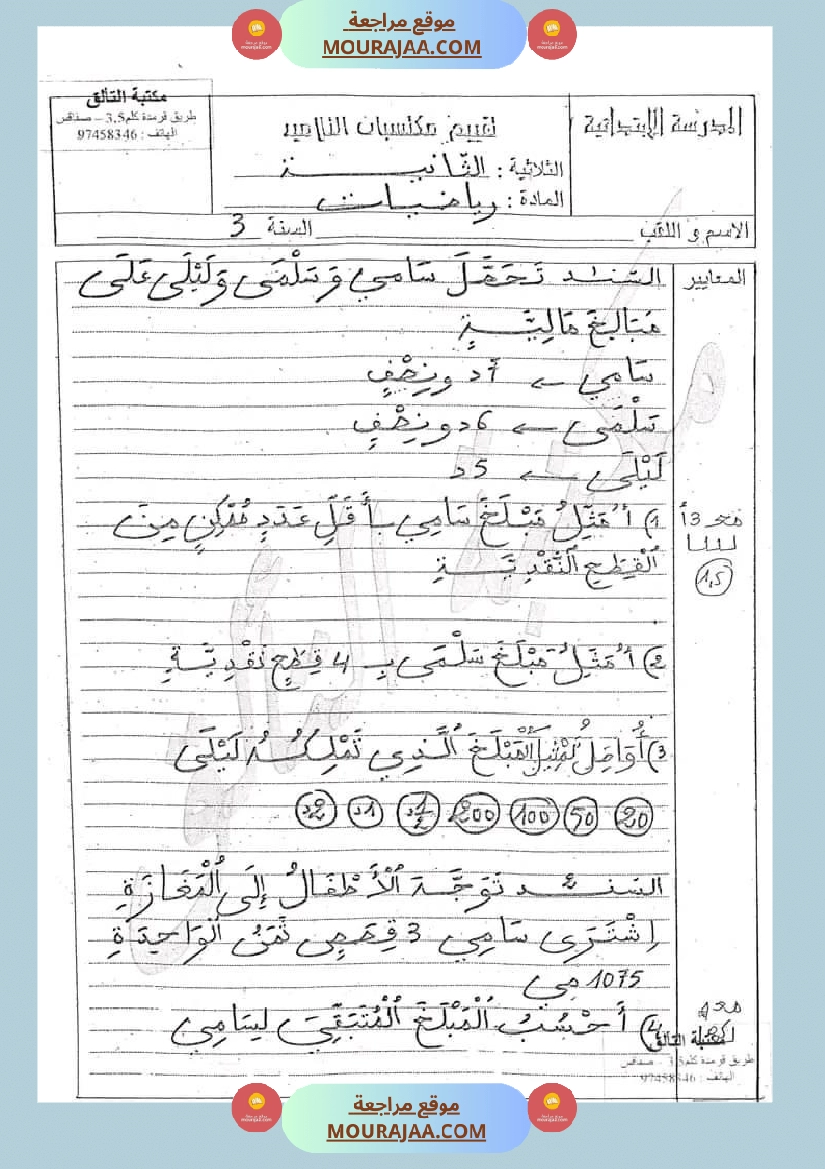 موقع مراجعة
MOURAJAA.COM
مكتبة التألق
طريق قرمدة كلم3.5 - صفاقس
الهاتف : 97458346
المدرسة الإبتدائية
تقييم مكتسبات التلاميذ
الثلاثية : الثّانيـــة
المادة : رياضيـات
الاسم و اللقب السنة 3
المعايير
السّند 1 تَحَصَّلَ سَامي وَسَلْمَى وَلَيْلَى عَلَى
مَبَالِغَ مَالِيَّـــةٍ
سَامِي ← د ونِصْفٍ
سَلْمَى ← 6د ونِصْفٍ
لَيْلَى ← 5د
1) أُمَثِّلُ مَبْلَغَ سَامِي بِأَقَلِّ عَدَدٍ مُمْكِنٍ مِنَ
الْقِطَعِ النَّقْدِيَّـــةِ
مع 3أ
1,5
2) أُمَثِّلُ مَبْلَغَ سَلْمَى بِـ 4 قِطَعٍ نَقْدِيَّـةٍ
3) أُوَاصِلُ تَمْثِيلَ الْمَبْلَغَ الَّذِي تَمْلِكُهُ لَيْلَى
20 50 100 200 1/2د 1د 2د
السّنـــد 2 تَوَجَّـهَ الْأَطْفَالُ إِلَى الْمَغَازَةِ
اِشْتَـرَى سَامِي 3 قِصَصٍ ثَمَنُ الْوَاحِدَةِ
1075 مي
4) أَحْسُبُ الْمَبْلَغَ الْمُتَبَقِّيَ لِسَامِي
مكتبة التألق
طريق قرمدة كلم3.5 - صفاقس
الهاتف : 97458346
موقع مراجعة
MOURAJAA.COM